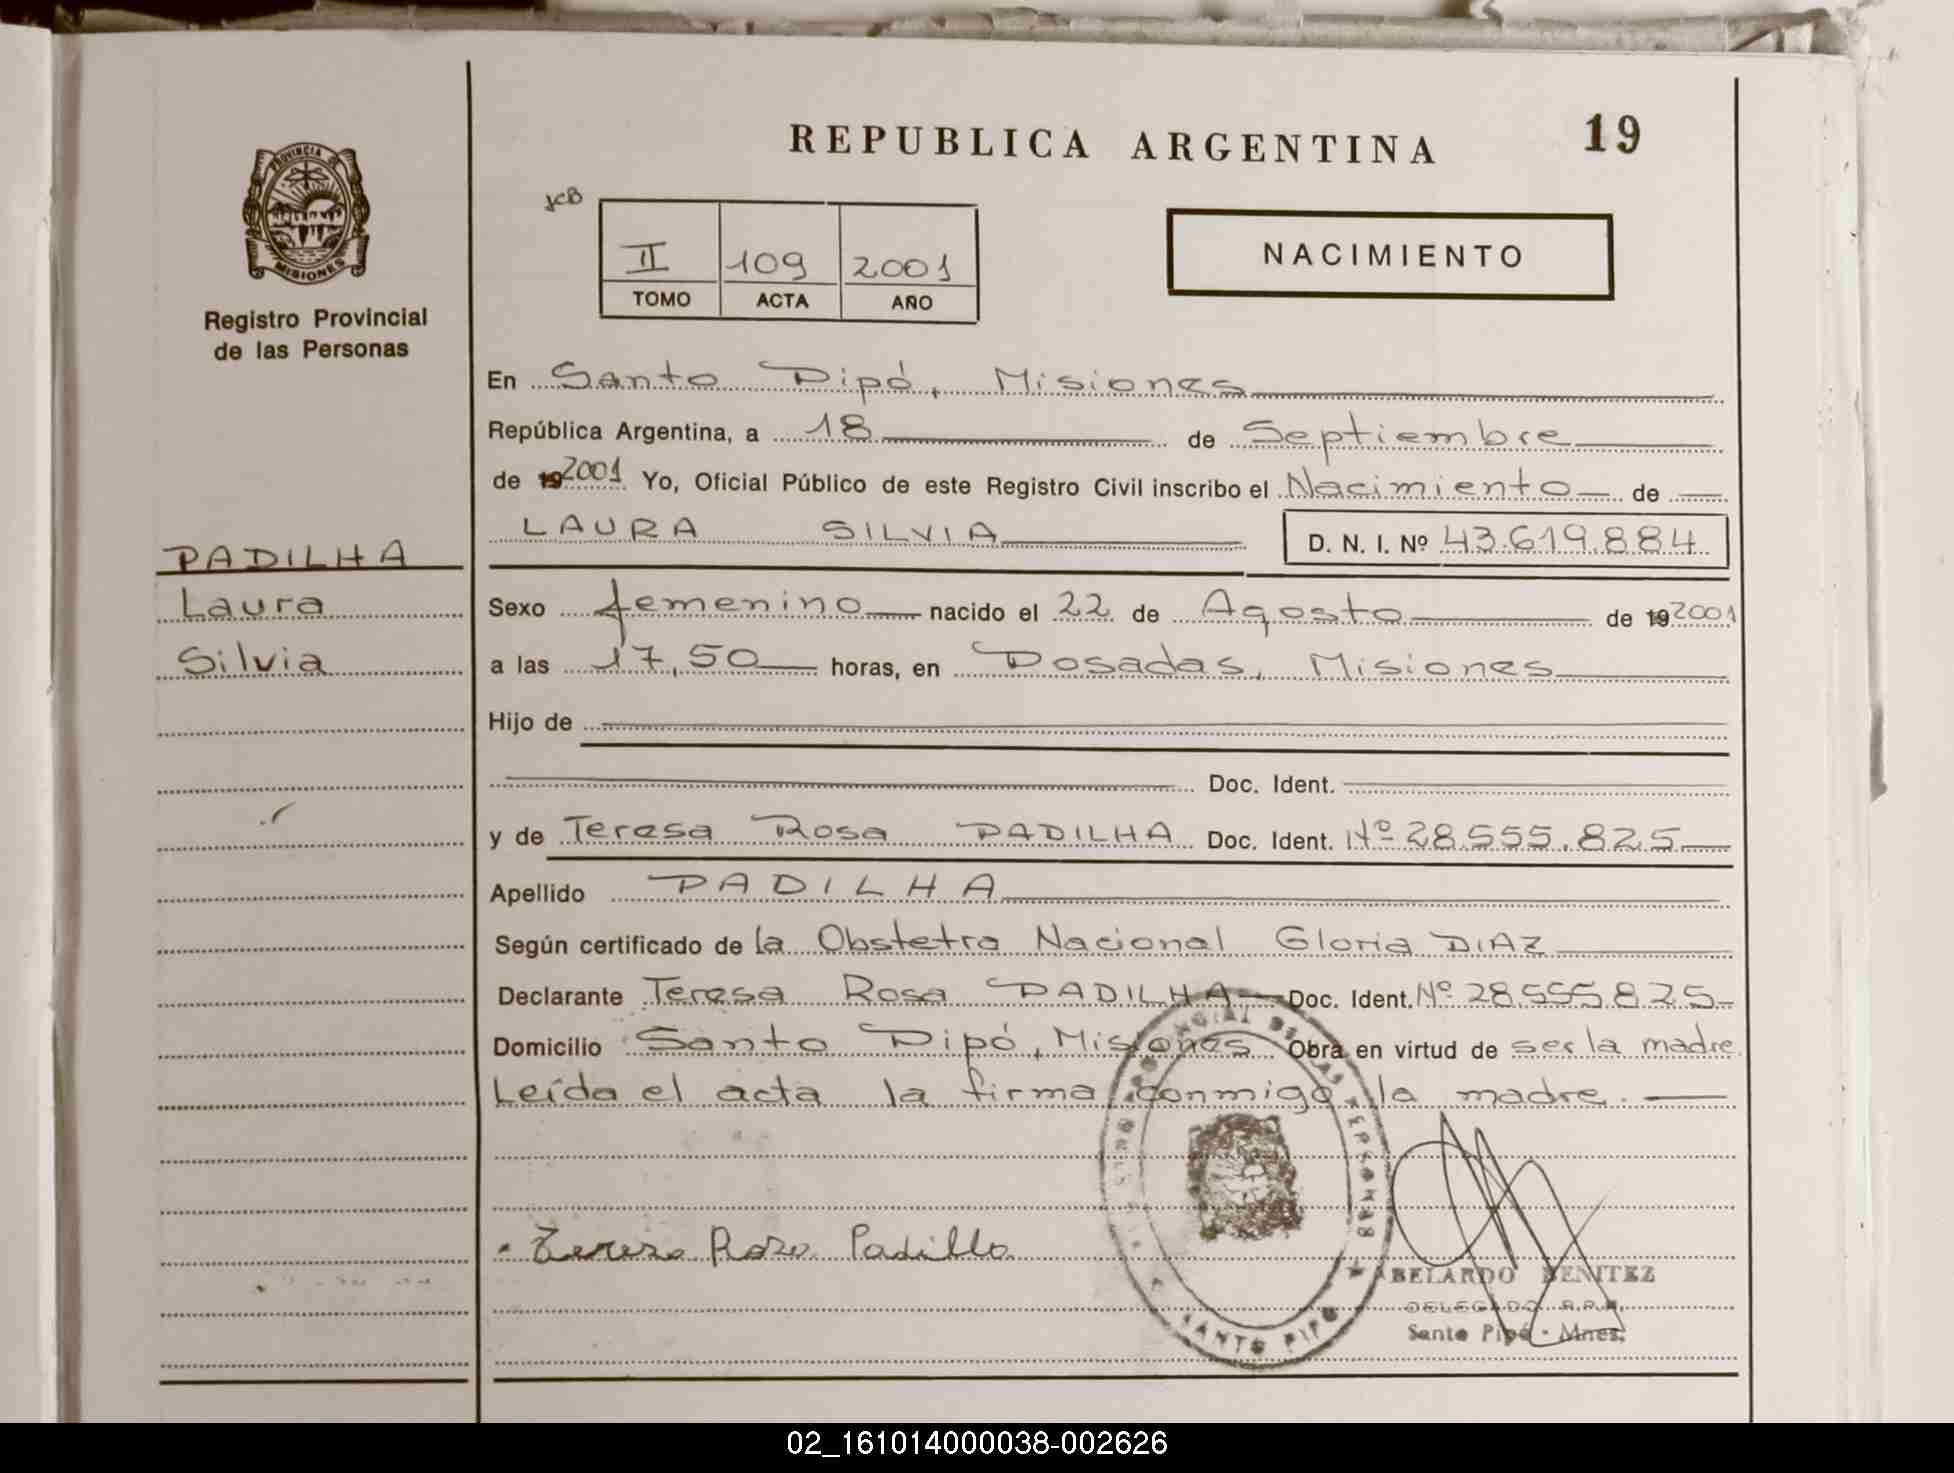 REPUBLICA ARGENTINA 19
PROVINCIA DE
MISIONES
Registro Provincial
de las Personas
JCB
II 109 2001
TOMO ACTA AÑO
NACIMIENTO
En Santo Pipó, Misiones
República Argentina, a 18 de Septiembre
de 192001 Yo, Oficial Público de este Registro Civil inscribo el Nacimiento de
LAURA SILVIA D. N. I. Nº 43.619.884
PADILHA
Laura
Silvia
Sexo femenino nacido el 22 de Agosto de 192001
a las 17,50 horas, en Posadas, Misiones
Hijo de
Doc. Ident.
y de Teresa Rosa PADILHA Doc. Ident. Nº 28.555.825
Apellido PADILHA
Según certificado de la Obstetra Nacional Gloria DIAZ
Declarante Teresa Rosa PADILHA Doc. Ident. Nº 28.555.825
Domicilio Santo Pipó, Misiones Obra en virtud de ser la madre.
Leída el acta la firma conmigo la madre.
Teresa Rosa Padilla
PROVINCIAL DE LAS PERSONAS
SANTO PIPO
ABELARDO BENITEZ
DELEGADO R.P.P.
Santo Pipó - Mnes.
02_161014000038-002626